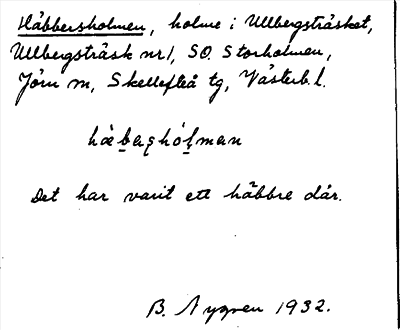 Häbbersholmen, holme i Ullbergsträsket,
Ullbergsträsk nr 1, SO. Storholmen,
Jörn sn, Skellefteå tg, Västerb. l.
Det har varit ett häbbre där.
B. Nygren 1932.